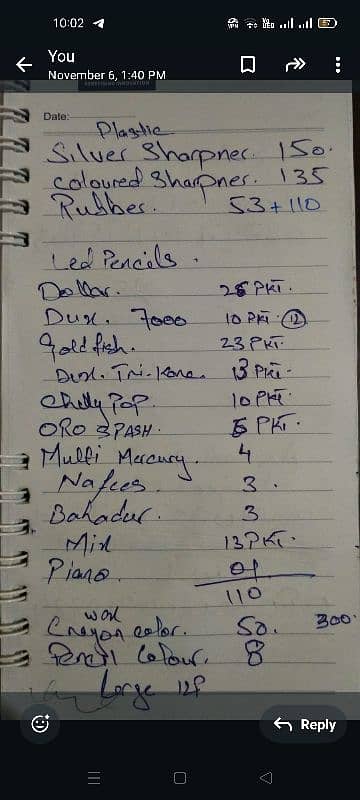 10:02
You
November 6, 1:40 PM
Date:
Plastic
Silver Sharpner. 150.
coloured Sharpner. 135
Rubber. 53 + 110
Led Pencils.
Dollar. 25 PKT.
Dux. 7000 10 PKT. 12
Goldfish. 23 PKT.
Dux. Tri-Kone. 13 PKT.
Chilly POP. 10 PKT
ORO SPASH. 5 PKT.
Multi Mercury. 4
Nafees. 3.
Bahadur. 3
Mix 13 PKT.
Piano. 01
110
wax
Crayon color. 50. 300.
Pencil Colour. 8
Large 12P
Reply